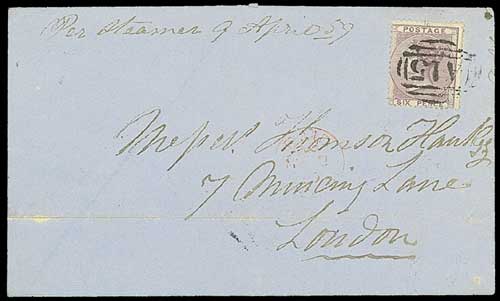 Per Steamer 9 April 59
POSTAGE
A15
SIX PENCE
Messrs. Thomson Hankey
7 Mincing Lane
London